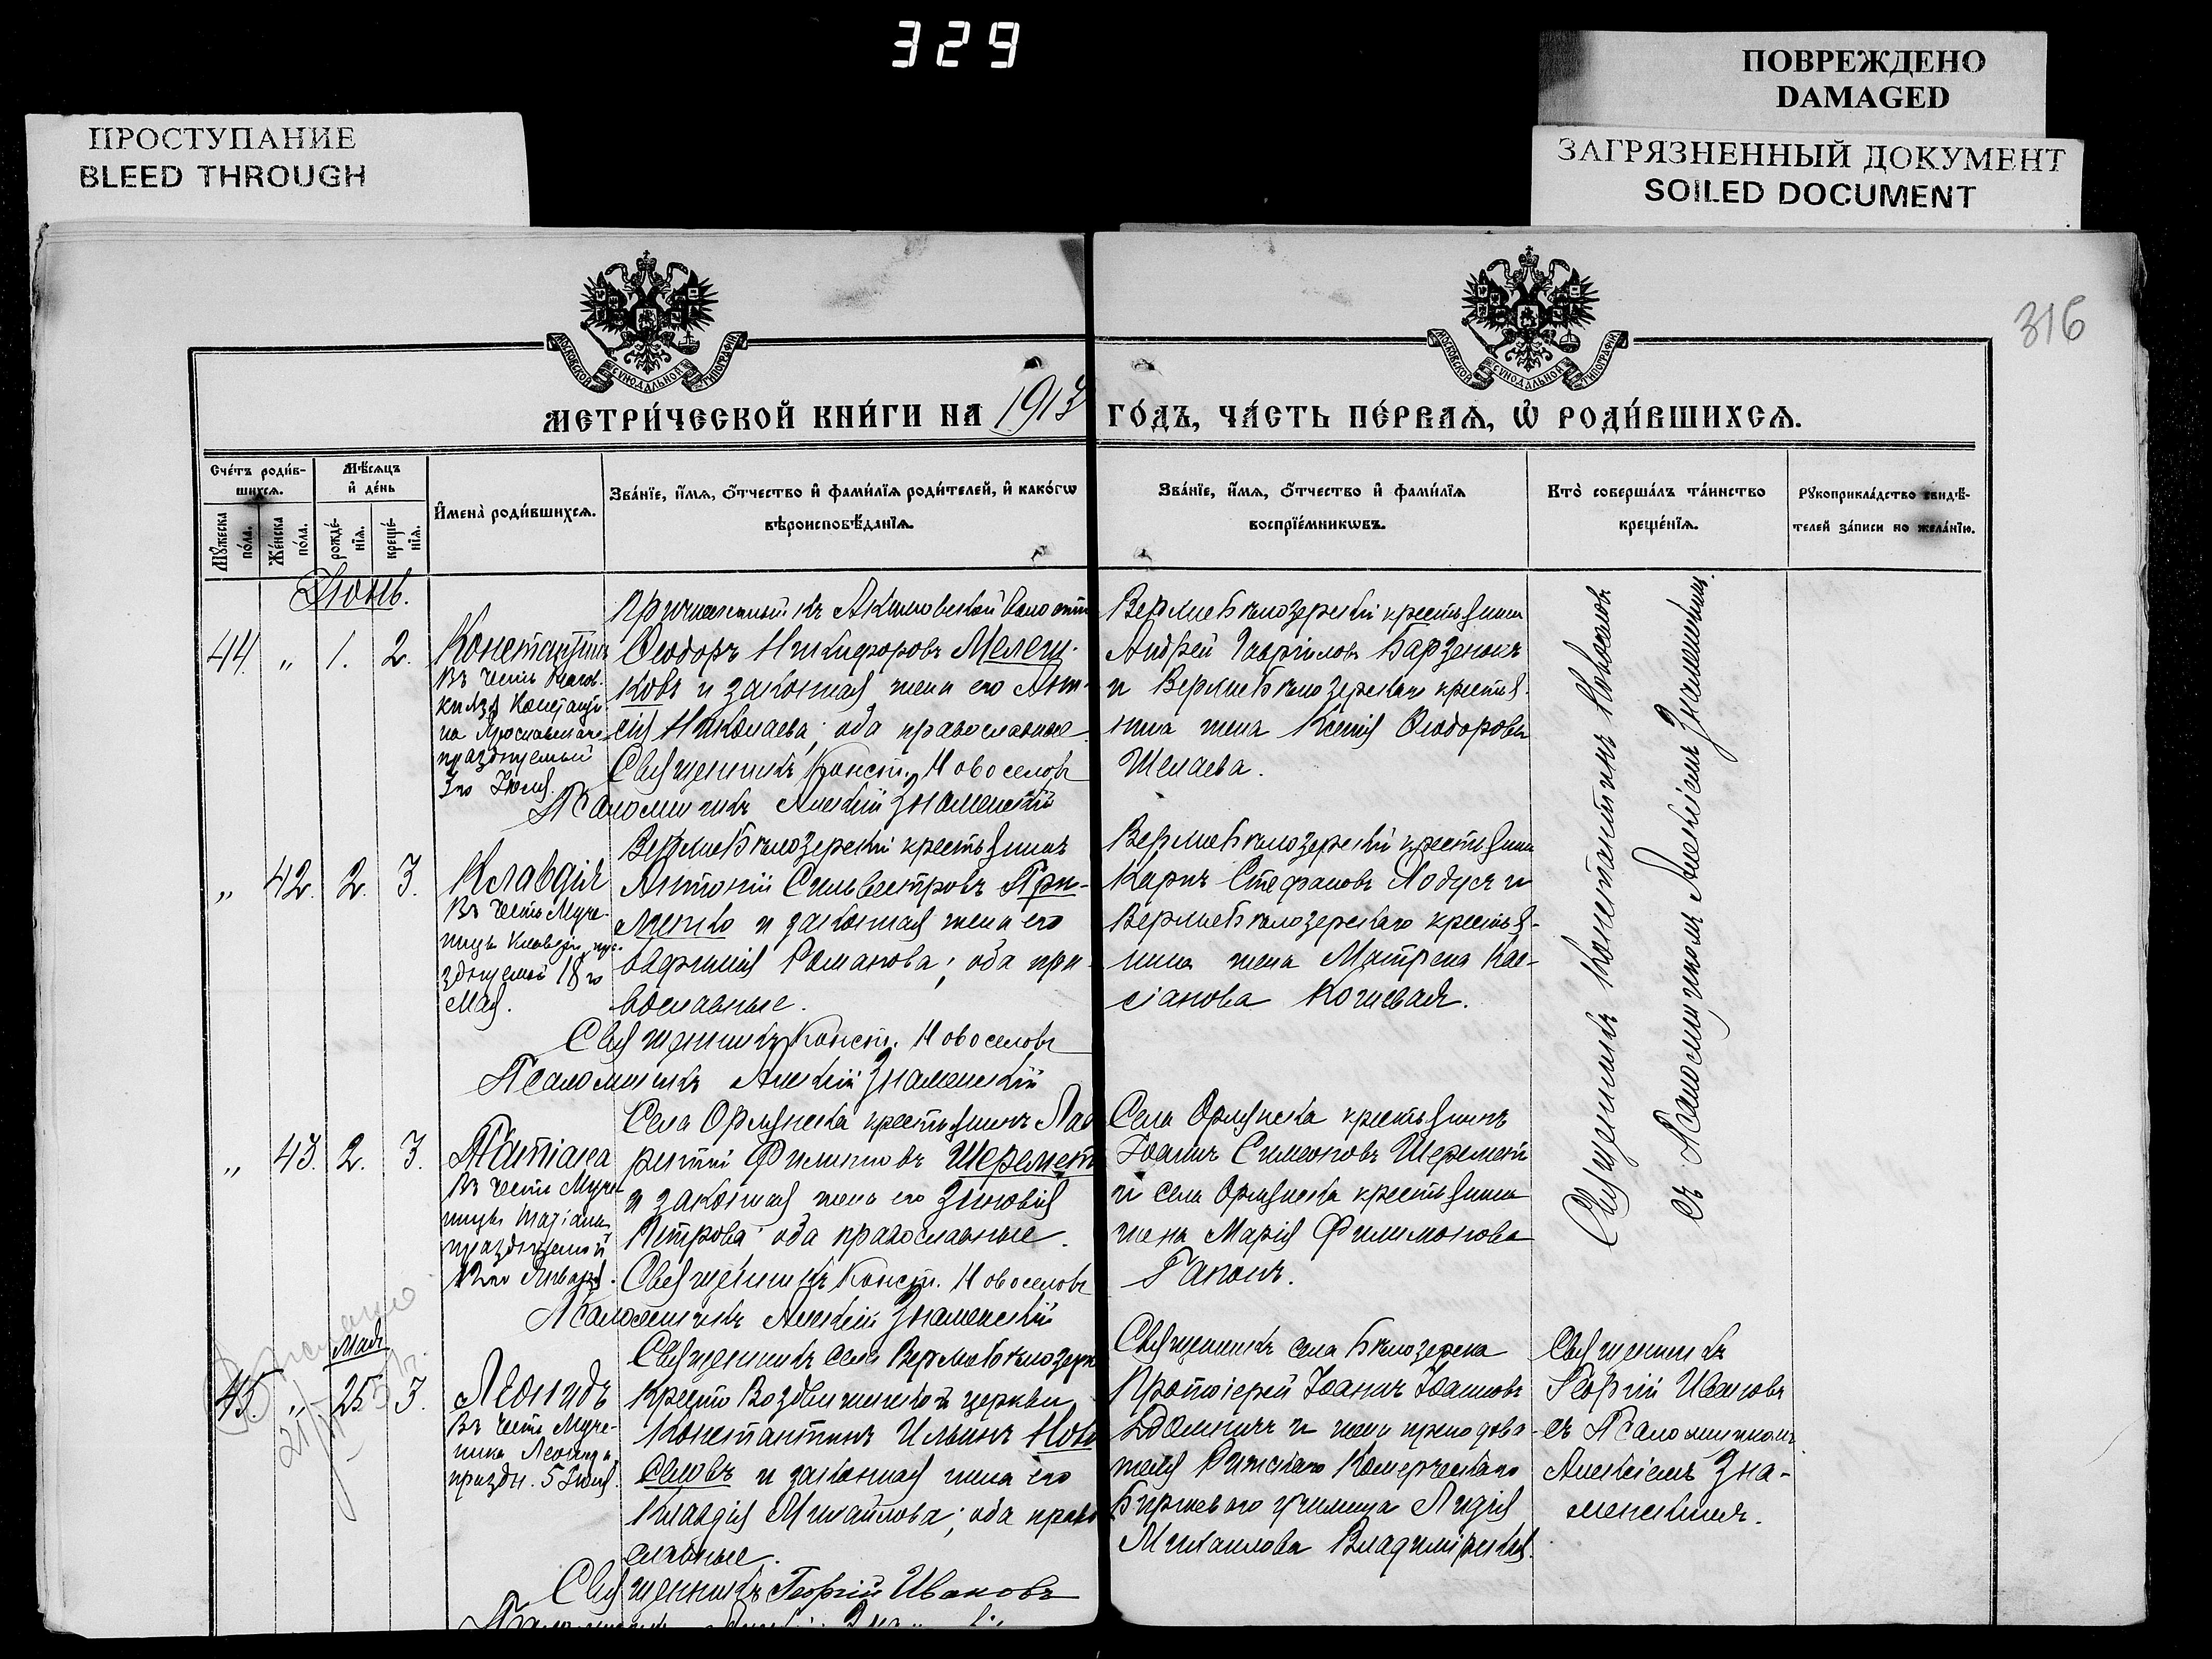 329
ПОВРЕЖДЕНО
DAMAGED
ПРОСТУПАНИЕ
BLEED THROUGH
ЗАГРЯЗНЕННЫЙ ДОКУМЕНТ
SOILED DOCUMENT
316
МОСКОВСКОЙ СѴНОДАЛЬНОЙ ТИПОГРАФІИ
МОСКОВСКОЙ СѴНОДАЛЬНОЙ ТИПОГРАФІИ
МЕТРИ́ЧЕСКОЙ КНИ́ГИ НА 1913 ГО́ДЪ, ЧА́СТЬ ПЕ́РВАѦ, Ѡ҆ РОДИ́ВШИХСѦ.
Сче́тъ роди́в-
шихсѧ.
Мѣ́сѧцъ
и҆ де́нь
Мꙋ́жеска
по́ла.
Же́нска
по́ла.
рожде́-
нїѧ.
креще́-
нїѧ.
И҆мена̀ роди́вшихсѧ.
Зва́нїе, и҆́мѧ, ѻ҆́тчество и҆ фами́лїѧ роди́телей, и҆ како́гѡ
вѣроисповѣ́данїѧ.
Зва́нїе, и҆́мѧ, ѻ҆́тчество и҆ фами́лїѧ
воспрїе́мникѡвъ.
Кто̀ соверша́лъ та́инство
креще́нїѧ.
Рꙋкоприкла́дство свидѣ́-
телей за́писи по жела́нїю.
Іюнь.
44. „ 1. 2.
Константинъ
Въ честь Благов.
князя Константи
на Ярославскаго
празднуемый
3го Іюня.
Ѳеодоръ Никифоровъ Мелеш-
ковъ и законная жена его
Николаева; оба православные
Священникъ Конст. Новоселовъ
Псаломщикъ Алексій Знаменскій
Верхнебѣлозерскій крестьянинъ
Андрей Гавріиловъ Барзенокъ
и Верхнебѣлозерскаго крестья-
нина жена Ксенія Ѳеодорова
Шелаева.
Священникъ Константинъ Новоселовъ
съ Псаломщикомъ Алексіемъ Знаменскимъ.
„ 42. 2. 3.
Клавдія
Въ честь Муче-
ницы Клавдіи, пра-
зднуемой 18го
Мая.
Верхнебѣлозерскій крестьянинъ
Антоній Сильвестровъ При-
и законная жена его
Евфимія Романова; оба пра-
вославные.
Священникъ Конст. Новоселовъ
Псаломщикъ Алексій Знаменскій
Верхнебѣлозерскій крестьянинъ
Карпъ Стефановъ Лодуся и
Верхнебѣлозерскаго крестья-
нина жена Матрона Кас-
сіанова Кошевая.
„ 43. 2. 3.
Татіана
Въ честь Муче-
ницы Татіаны
празднуемой
12го Января.
Села Орлянска крестьянинъ Лав
рентій Филипповъ Шеремет
и законная жена его Зиновія
Петрова оба православные.
Священникъ Конст. Новоселовъ
Псаломщикъ Алексій Знаменскій
Села Орлянска крестьянинъ
Іоаннъ Симеоновъ Шереметъ
и села Орлянска крестьянина
жена Марія Филимонова
Гапонъ.
Мая
45. „ 25 3.
Леонидъ
Въ честь Муче-
ника Леонида,
праздн. 5 Іюня.
Священникъ села Верхнебѣлозерк
Кресто Воздвиженской церкви
Константинъ Ильинъ Ново
селовъ и законная жена его
Клавдія Михайлова; оба право
славные.
Священникъ Георгій Ивановъ
Священникъ села Бѣлозерка
Протоіерей Іоаннъ Іоанновъ
и жена преподава-
теля Рижскаго Комерческаго
Биржеваго училища Лидія
Михаилова Владимірская.
Священникъ
Георгій Ивановъ
съ Псаломщикомъ
Алексіемъ Зна-
менскимъ.